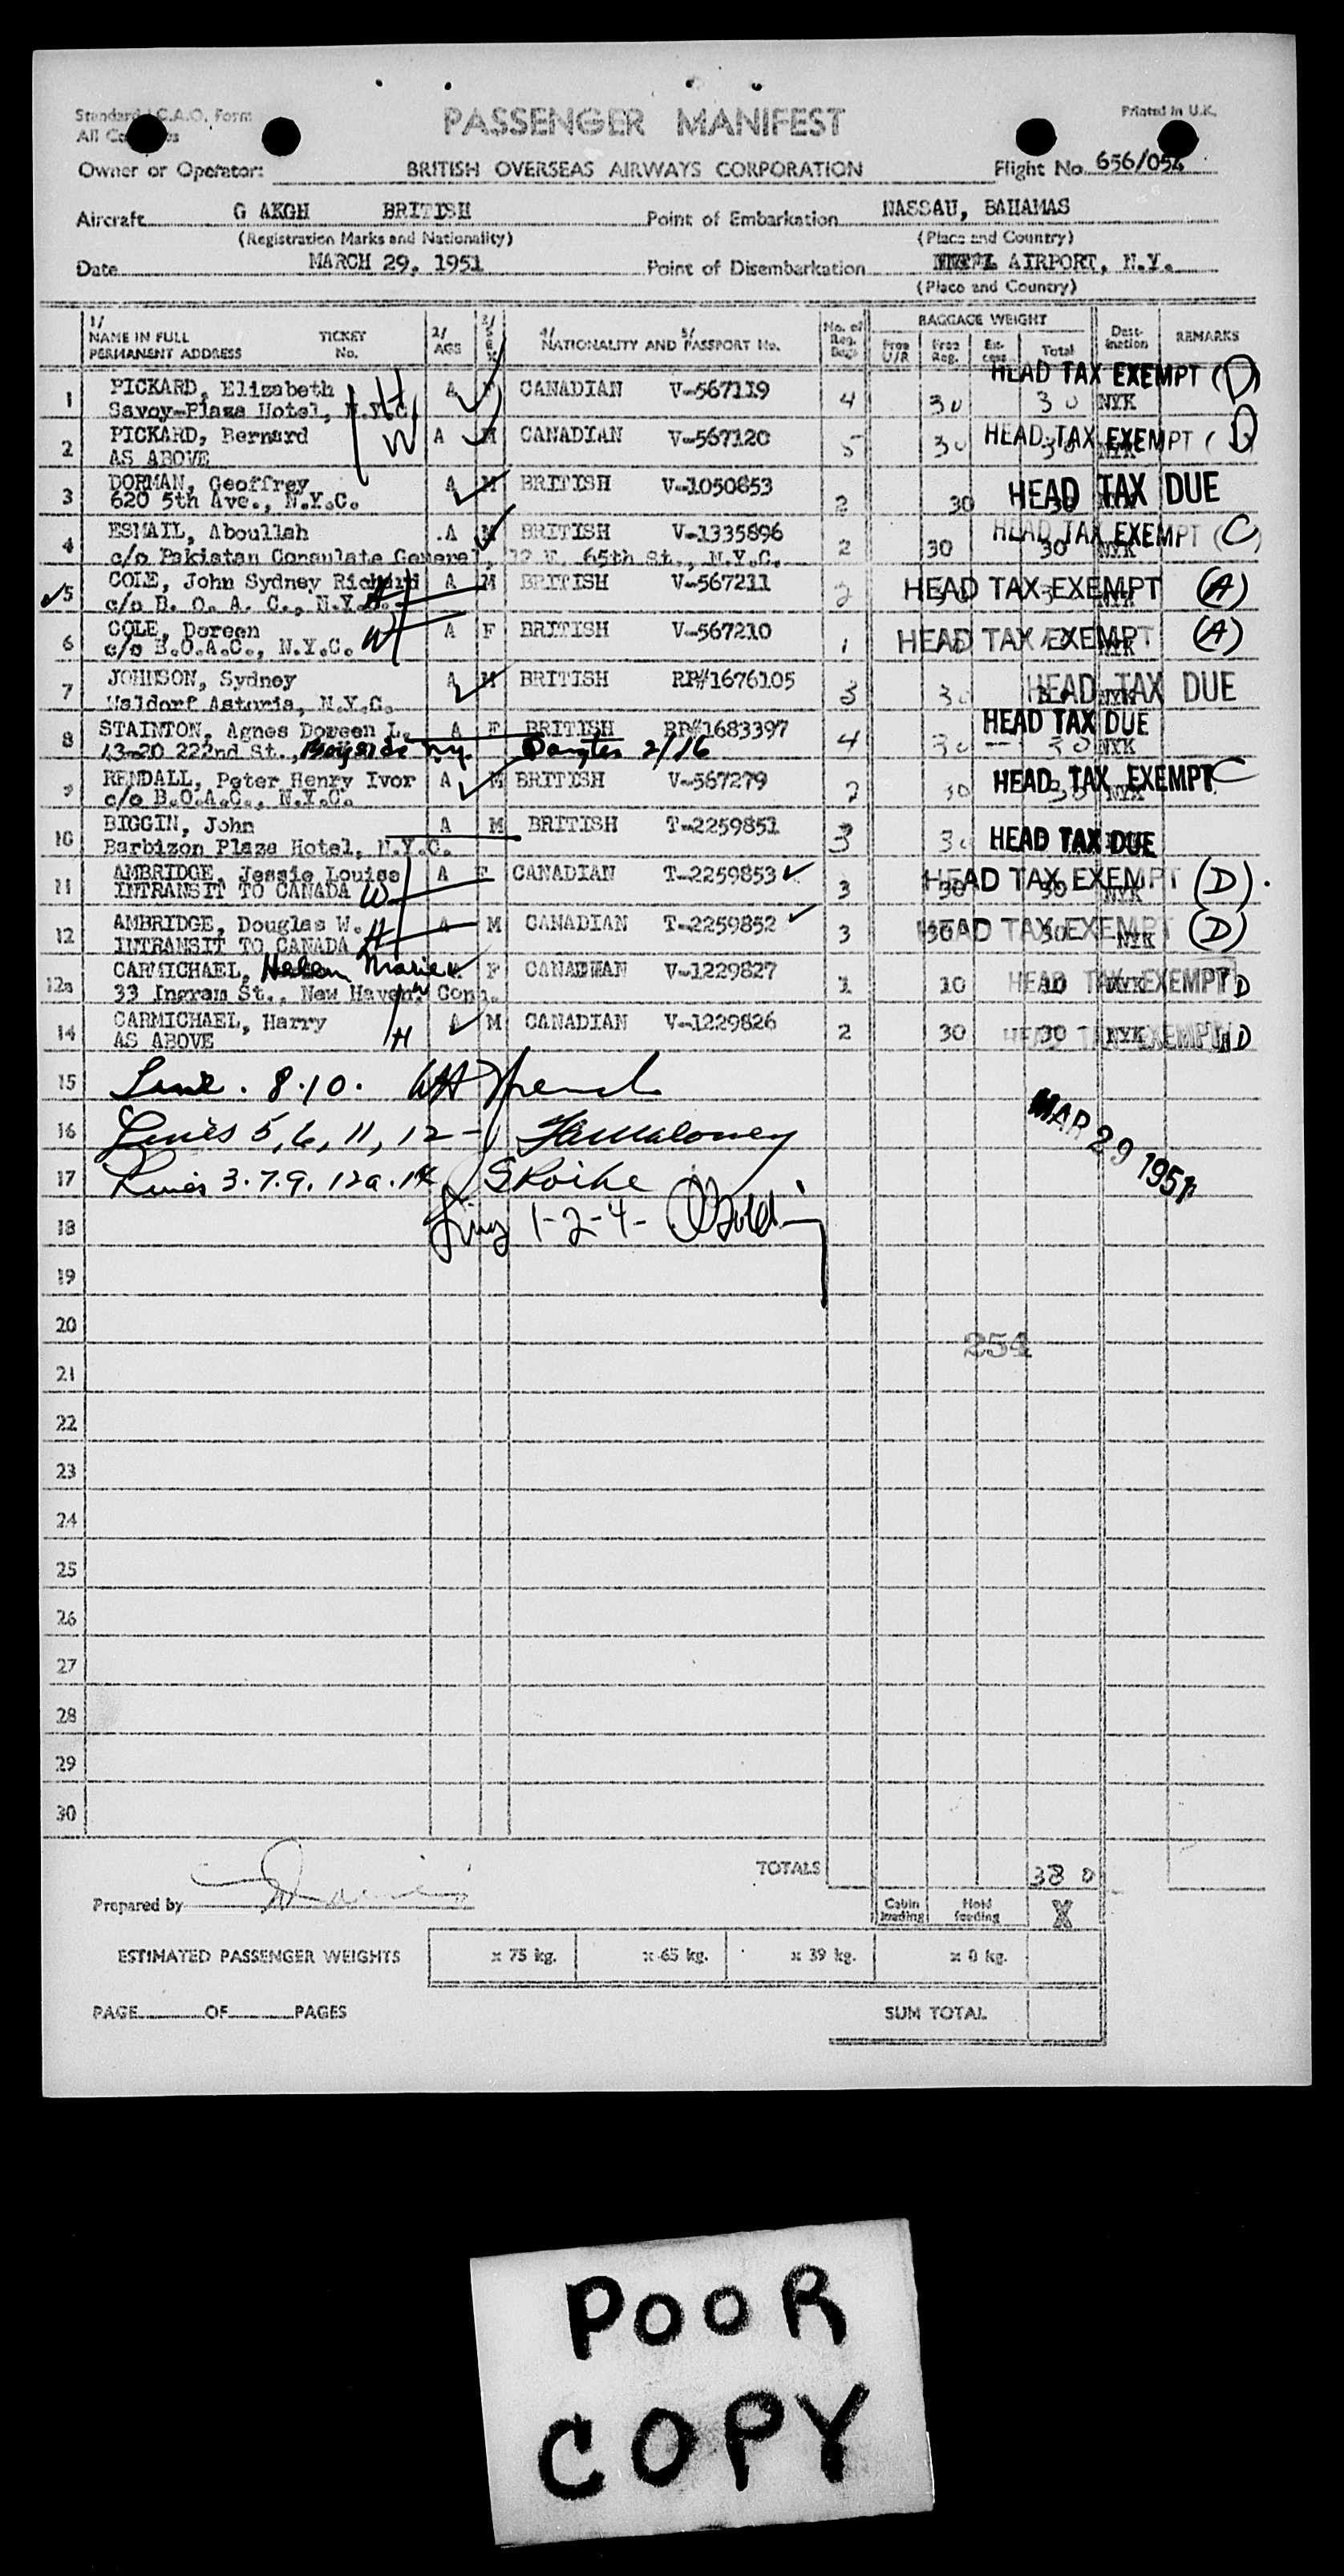 Standard I.C.A.O. Form
PASSENGER MANIFEST
Printed in U.K.
All
Owner or Operator: BRITISH OVERSEAS AIRWAYS CORPORATION Flight No. 656/054
Aircraft G AKGH BRITISH Point of Embarkation NASSAU, BAHAMAS
(Registration Marks and Nationality) (Place and Country)
Date MARCH 29, 1951 Point of Disembarkation AIRPORT, N.Y.
(Place and Country)
1/ NAME IN FULL PERMANENT ADDRESS TICKET No. 2/ AGE 3/ SEX 4/ NATIONALITY AND 5/ PASSPORT No. No. of Reg. Bags BAGGAGE WEIGHT Free U/R Free Reg. Ex-cess Total Dest-ination REMARKS
1 PICKARD, Elizabeth A CANADIAN V-567119 4 30 30 NYK HEAD TAX EXEMPT (D)
Savoy-Plaza Hotel, N.Y.C. H
2 PICKARD, Bernard W A M CANADIAN V-567120 5 30 30 HEAD TAX EXEMPT (D)
AS ABOVE
3 DORMAN, Geoffrey A M BRITISH V-1050653 2 30 30 HEAD TAX DUE
620 5th Ave., N.Y.C.
4 ESMAIL, Aboullah A M BRITISH V-1335896 2 30 30 NYK HEAD TAX EXEMPT (C)
c/o Pakistan Consulate General, 12 E. 65th St., N.Y.C.
5 COLE, John Sydney Richard A M BRITISH V-567211 2 HEAD TAX EXEMPT (A)
c/o B. O. A. C., N.Y.C. H
6 COLE, Doreen A F BRITISH V-567210 1 HEAD TAX EXEMPT (A)
c/o B.O.A.C., N.Y.C. W
7 JOHNSON, Sydney A M BRITISH RP#1676105 3 30 30 NYK HEAD TAX DUE
Waldorf Astoria, N.Y.C.
8 STAINTON, Agnes Doreen L. A F BRITISH RP#1683397 4 30 — 30 NYK HEAD TAX DUE
43-20 222nd St., Bayside N.Y. 2/16
9 RENDALL, Peter Henry Ivor A M BRITISH V-567279 2 30 30 NYK HEAD TAX EXEMPT C
c/o B.O.A.C., N.Y.C.
10 BIGGIN, John A M BRITISH T-2259851 3 30 HEAD TAX DUE
Barbizon Plaza Hotel, N.Y.C.
11 AMBRIDGE, Jessie Louise A F CANADIAN T-2259853 3 30 30 NYK HEAD TAX EXEMPT (D).
INTRANSIT TO CANADA W
12 AMBRIDGE, Douglas W. A M CANADIAN T-2259852 3 30 30 NYK HEAD TAX EXEMPT (D)
INTRANSIT TO CANADA H
12a CARMICHAEL, Helen Marie F CANADIAN V-1229827 1 10 10 NYK HEAD TAX EXEMPT D
33 Ingram St., New Haven, Conn. W
14 CARMICHAEL, Harry A M CANADIAN V-1229826 2 30 30 NYK HEAD TAX EXEMPT D
AS ABOVE H
15 Line. 8.10.
16 Lines 5, 6, 11, 12 - Maloney
MAR 29 1951
17 Lines 3.7.9.12a.14
18 Lines 1-2-4-
19
20
254
21
22
23
24
25
26
27
28
29
30
TOTALS 380
Prepared by
Cabin loading Hold loading X
ESTIMATED PASSENGER WEIGHTS x 75 kg. x 65 kg. x 39 kg. x 0 kg.
PAGE OF PAGES SUM TOTAL
POOR
COPY